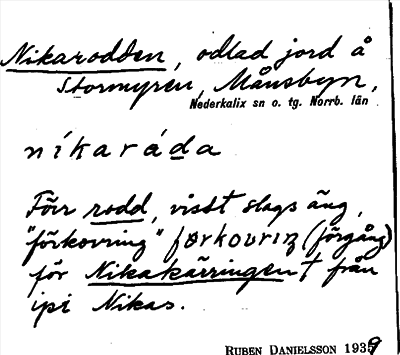 Nikarodden, odlad jord å
Stormyren, Månsbyn,
Nederkalix sn o. tg. Norrb. län
níkaráda
Förr rodd, visst slags äng,
"förkovring" førkovriŋ (förgång)
för Nikakärringen † från
ipi Nikas.
RUBEN DANIELSSON 1939